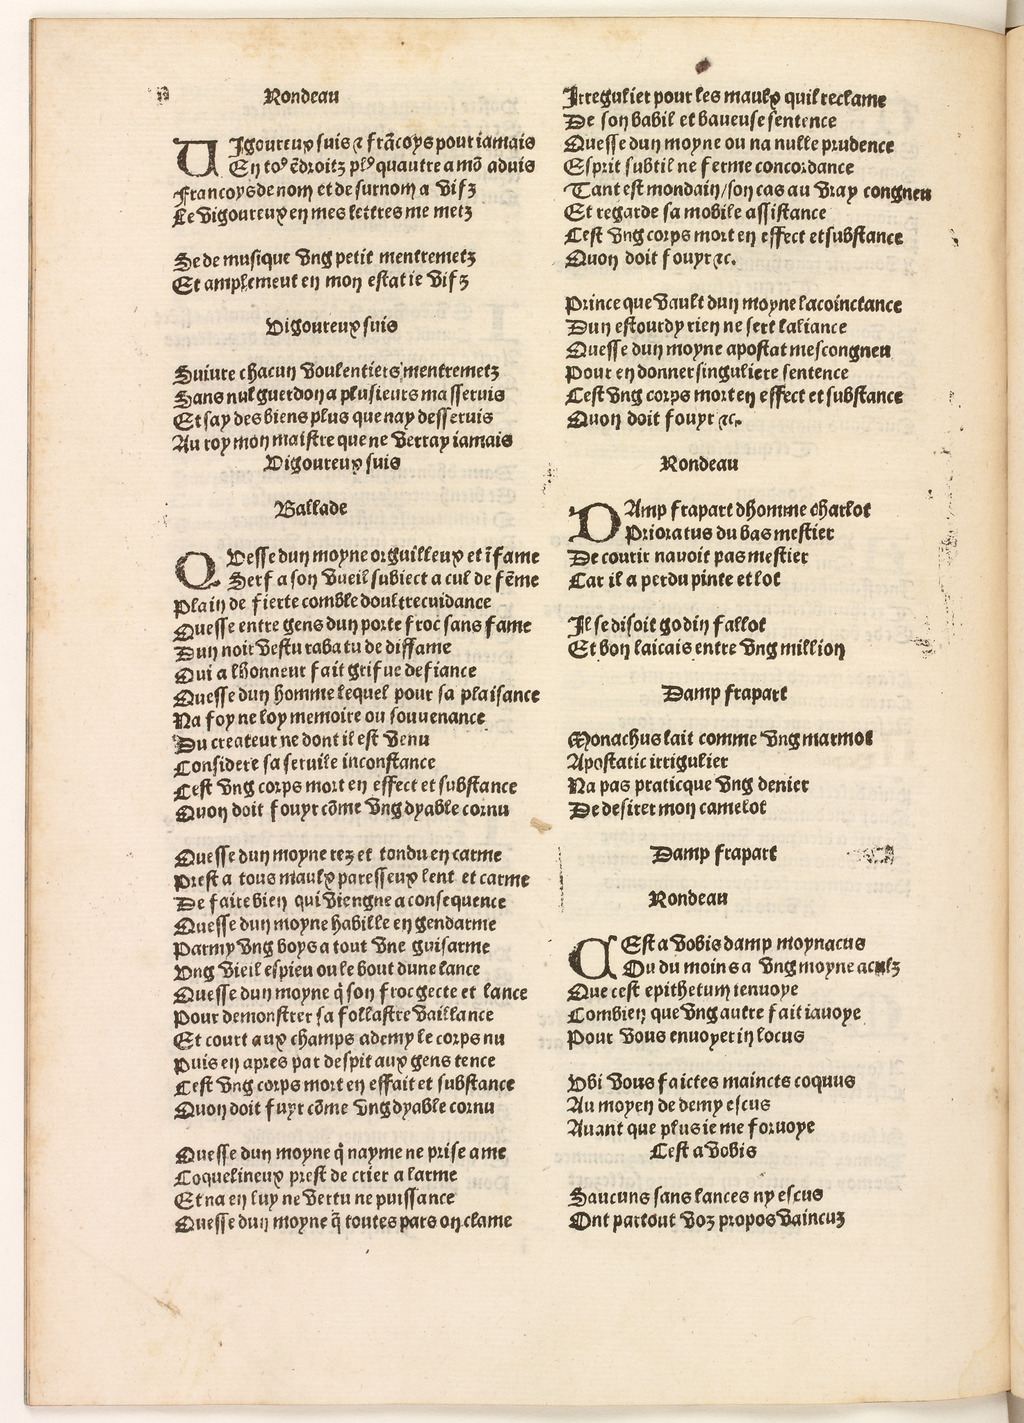 Rondeau
VIgoureux suis & frãcoys pour iamais
En to⁹ ẽdroitz pl⁹ quautre a mõ aduis
Francoys de nom et de surnom a Vifz
Le Vigoureux en mes lettres me metz
Se de musique Vng petit mentremetz
Et amplement en mon estat ie Vifz
Vigoureux suis
Suiure chacun Voulentiers mentremetz
Sans nul guerdon a plusieurs ma sseruis
Et say des biens plus que nay desseruis
Au roy mon maistre que ne Verray iamais
Vigoureux suis
Ballade
QVesse dun moyne orguilleux et ĩfame
Serf a son Vueil subiect a cul de fẽme
Plain de fierte comble doultrecuidance
Quesse entre gens dun porte froc sans fame
Dun noir Vestu rabatu de diffame
Qui a lhonneur fait grif ue defiance
Quesse dun homme lequel pour sa plaisance
Na foy ne loy memoire ou souuenance
Du createur ne dont il est Venu
Considere sa seruile inconstance
Cest Vng corps mort en effect et substance
Quon doit fouyr cõme Vng dyable cornu
Quesse dun moyne rez et tondu en carme
Prest a tous maulx paresseux lent et carme
De faire bien qui Viengne a consequence
Quesse dun moyne habille en gendarme
Parmy Vng boys a tout Vne guisarme
Vng Vieil espieu ou le bout dune lance
Quesse dun moyne q̃ son froc gecte et lance
Pour demonstrer sa follastre Vaillance
Et court aux champs a demy le corps nu
Puis en apres par despit aux gens tence
Cest Vng corps mort en effait et substance
Quon doit fuyr cõme Vng dyable cornu
Quesse dun moyne q̃ nayme ne prise ame
Coquelineux prest de crier a larme
Et na en luy ne Vertu ne puissance
Quesse dun moyne q̃ toutes pars on clame
Irregulier pour les maulx quil reclame
De son babil et baueuse sentence
Quesse dun moyne ou na nulle prudence
Esprit subtil ne ferme concordance
Tant est mondain/son cas au Vray congneu
Et regarde sa mobile assistance
Cest Vng corps mort en effect et substance
Quon doit fouyr &c.
Prince que Vault dun moyne lacoinctance
Dun estourdy rien ne sert laliance
Quesse dun moyne apostat mescongneu
Pour en donner singuliere sentence
Cest Vng corps mort en effect et substance
Quon doit fouyr &c.
Rondeau
DAmp frapart dhomme charlot
Prioratus du bas mestier
De courir nauoit pas mestier
Car il a perdu pinte et lot
Il se disoit godin fallot
Et bon laicais entre Vng million
Damp frapart
Monachus lait comme Vng marmot
Apostatic irrigulier
Na pas praticque Vng denier
De desirer mon camelot
Damp frapart
Rondeau
CEst a Vobis damp moynacus
Ou du moins a Vng moyne aculz
Que cest epithetum ienuoye
Combien que Vng autre fait iauoye
Pour Vous enuoyer in locus
Vbi Vous faictes maincts coquus
Au moyen de demy escus
Auant que plus ie me foruoye
Cest a Vobis
Saucuns sans lances ny escus
Ont partout Voz propos Vaincuz